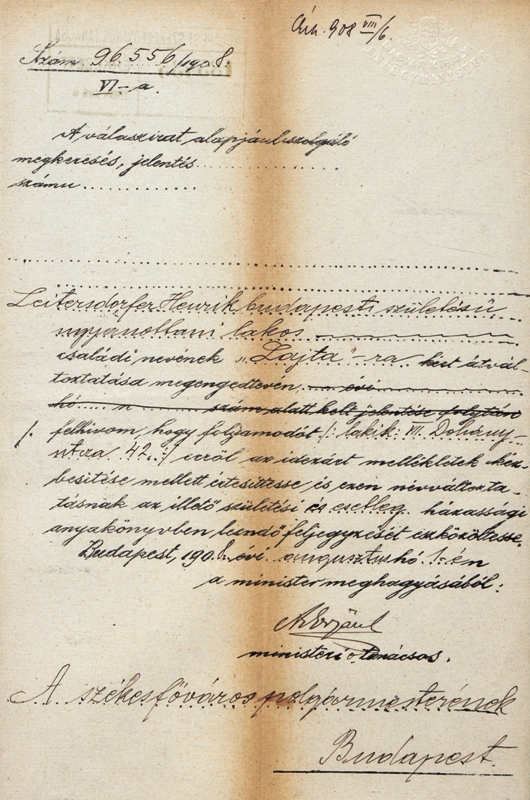 908 VIII/6.
Szám 96.556/1908.
VI-a.
A válaszirat alapjául szolgáló
megkeresés, jelentés
száma
Leitersdorfer Henrik budapesti születésű
ugyanottani lakos
családi nevének „Lajta"-ra kért átvál-
toztatása megengedtetvén évi
hó n szám alatt kelt jelentése folytán
/. felhivom, hogy folyamodót /: lakik: VII. Dohány-
utca 42. :/ erről az idezárt mellékletek kéz-
besitése mellett értesittesse és ezen névváltozta-
tásnak az illető születési és esetleg házassági
anyakönyvben leendő feljegyzését eszközöltesse.
Budapest, 1908. évi augusztus hó 1-én
a minister meghagyásából:
ministeri tanácsos.
A székesfőváros polgármesterének
Budapest.